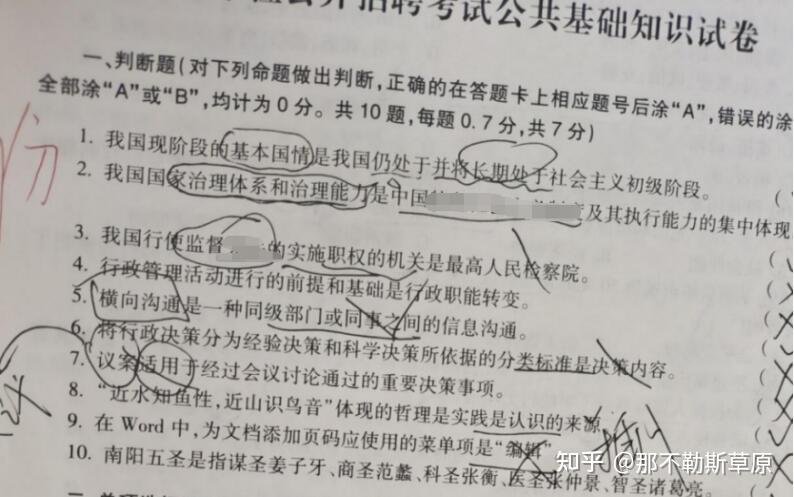 公开招聘考试公共基础知识试卷
一、判断题(对下列命题做出判断,正确的在答题卡上相应题号后涂“A”,错误的涂
全部涂“A”或“B”,均计为0分。共10题,每题0.7分,共7分)
份
1. 我国现阶段的基本国情是我国仍处于并将长期处于社会主义初级阶段。(
2. 我国国家治理体系和治理能力是中国 及其执行能力的集中体现
3. 我国行使监督 的实施职权的机关是最高人民检察院。(
4. 行政管理活动进行的前提和基础是行政职能转变。(
5. 横向沟通是一种同级部门或同事之间的信息沟通。(
6. 将行政决策分为经验决策和科学决策所依据的分类标准是决策内容。(
7. 议案适用于经过会议讨论通过的重要决策事项。(
8. “近水知鱼性,近山识鸟音”体现的哲理是实践是认识的来源。(
9. 在Word中,为文档添加页码应使用的菜单项是“编辑” 插入
10. 南阳五圣是指谋圣姜子牙、商圣范蠡、科圣张衡、医圣张仲景、智圣诸葛亮。
知乎 @那不勒斯草原